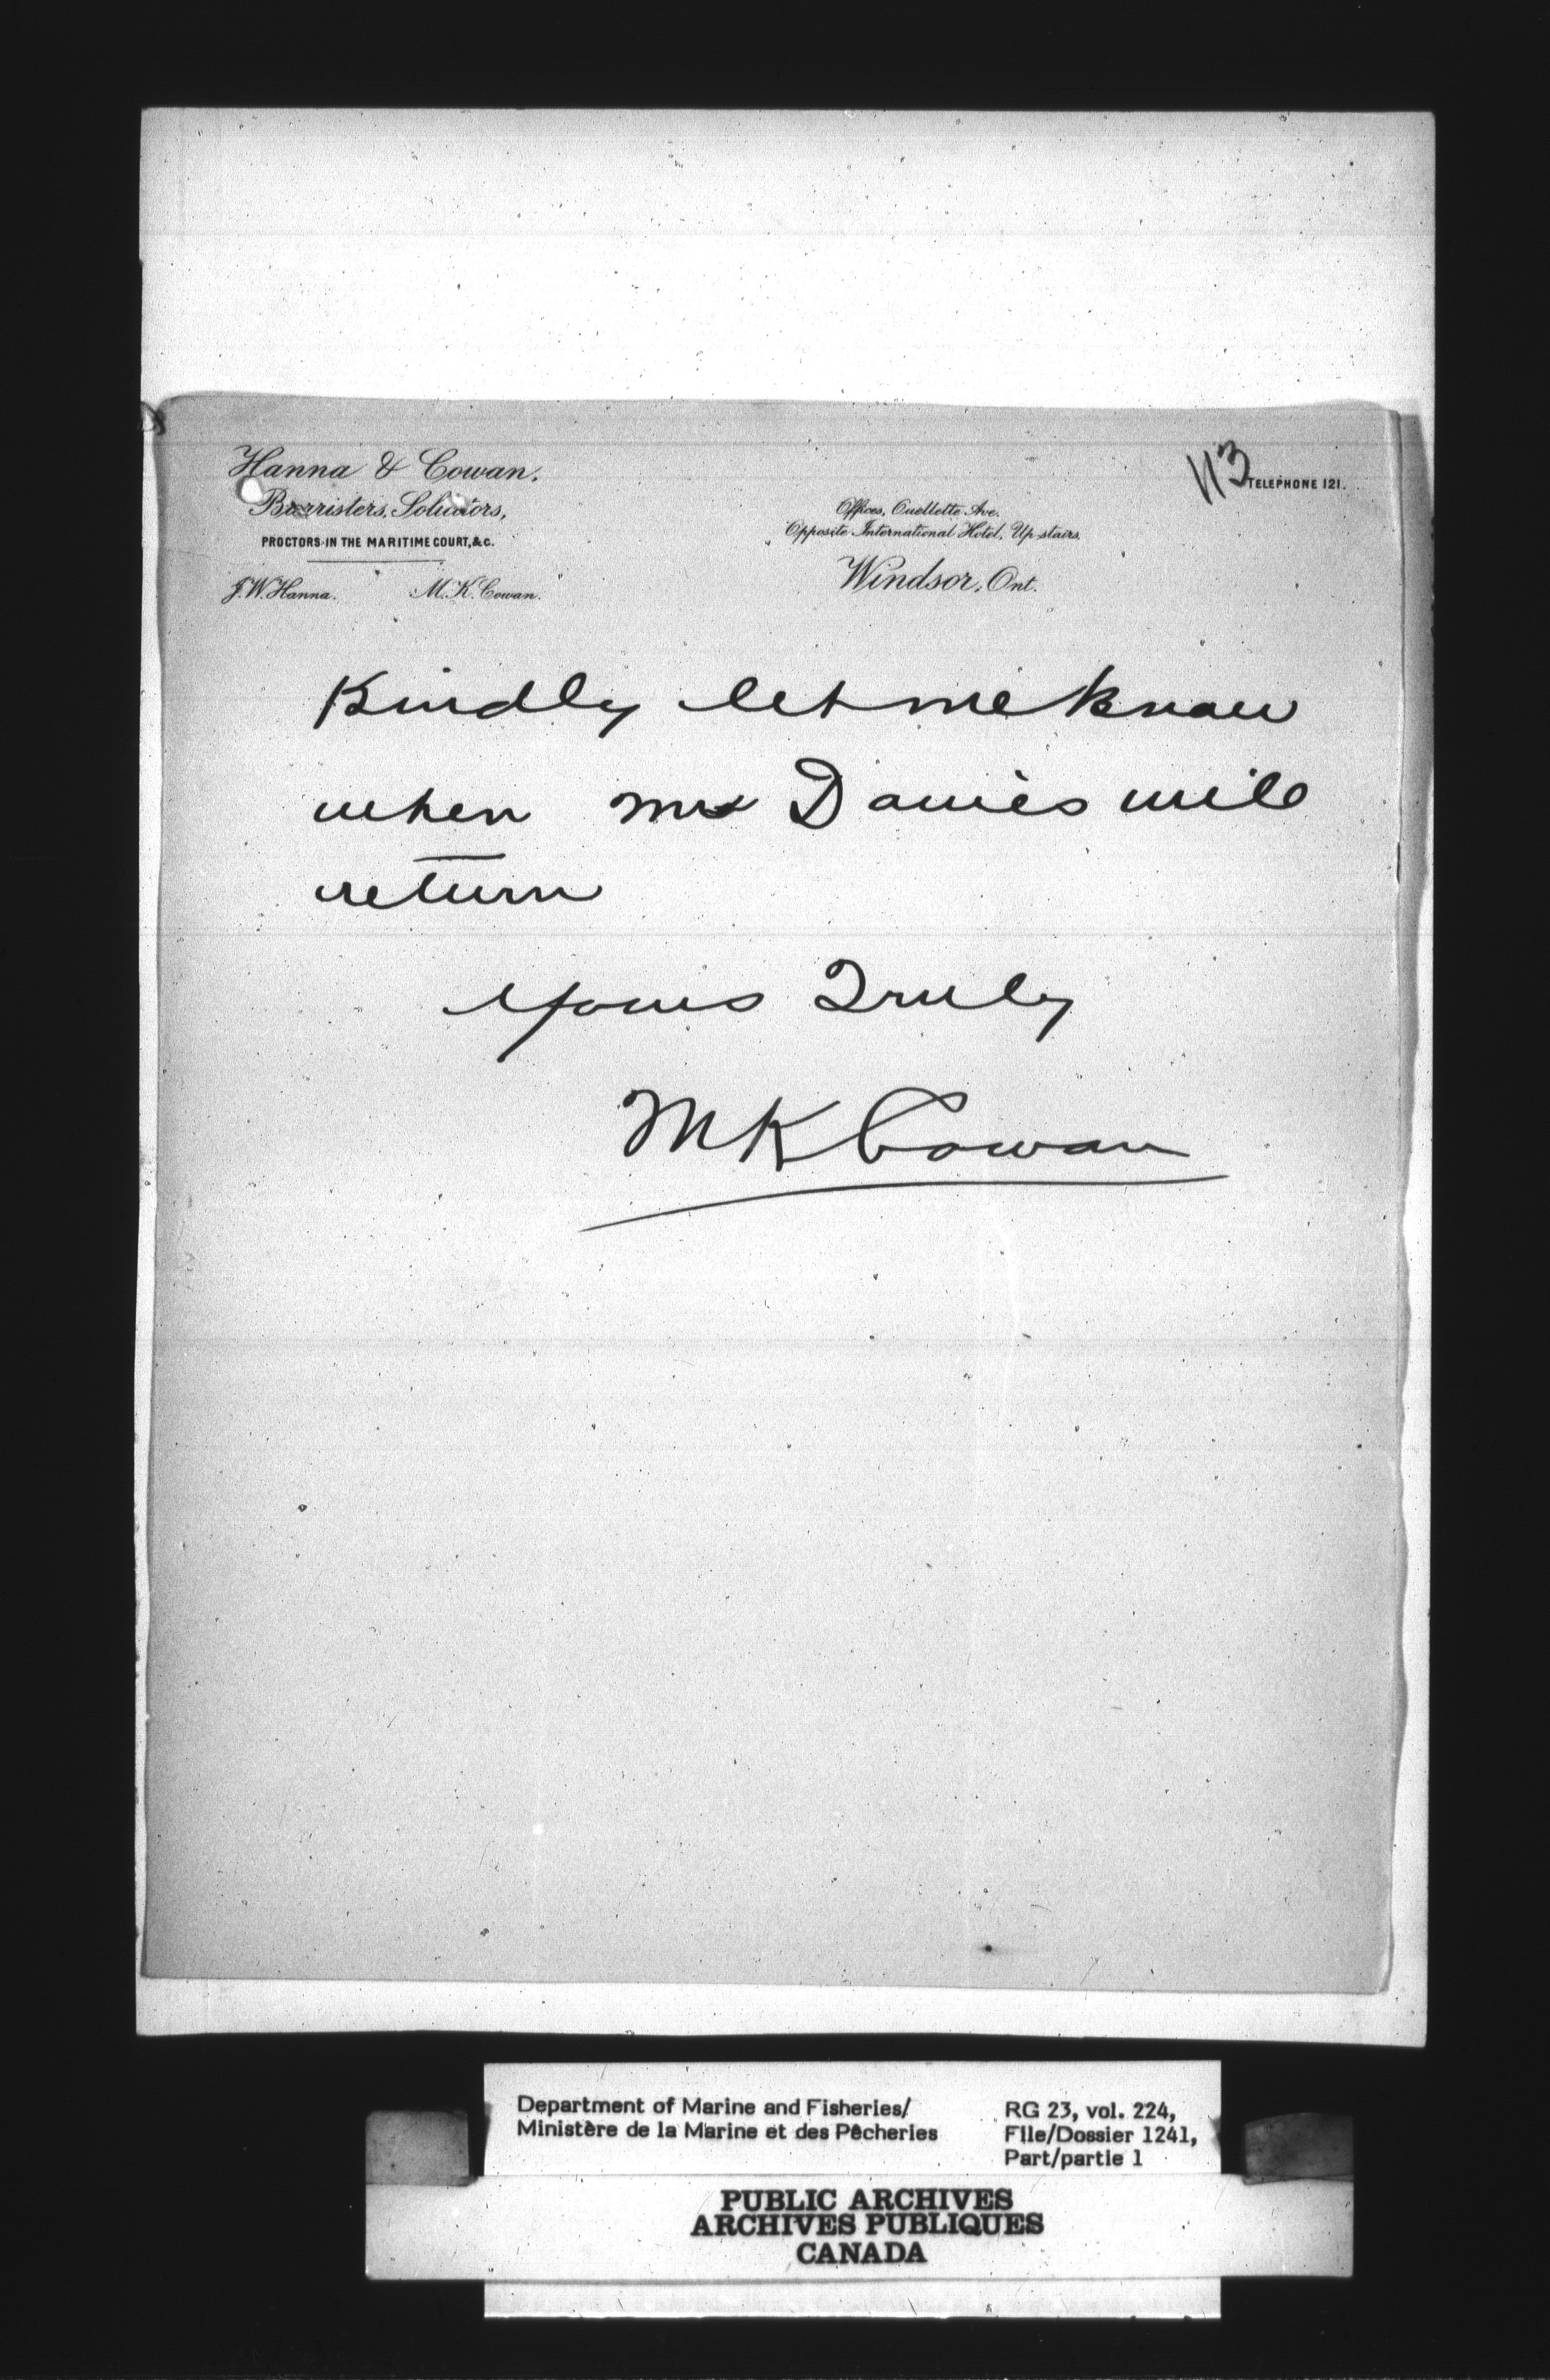 Hanna & Cowan.
Barristers, Solicitors,
PROCTORS IN THE MARITIME COURT, &C.
J. W. Hanna. M. K. Cowan.
113
TELEPHONE 121.
Offices, Ouellette Ave.
Opposite International Hotel, Up-stairs.
Windsor, Ont.
Kindly let me know
when Mr Davies will
return
Yours Truly
M K Cowan
Department of Marine and Fisheries/
Ministère de la Marine et des Pêcheries
RG 23, vol. 224,
File/Dossier 1241,
Part/partie 1
PUBLIC ARCHIVES
ARCHIVES PUBLIQUES
CANADA